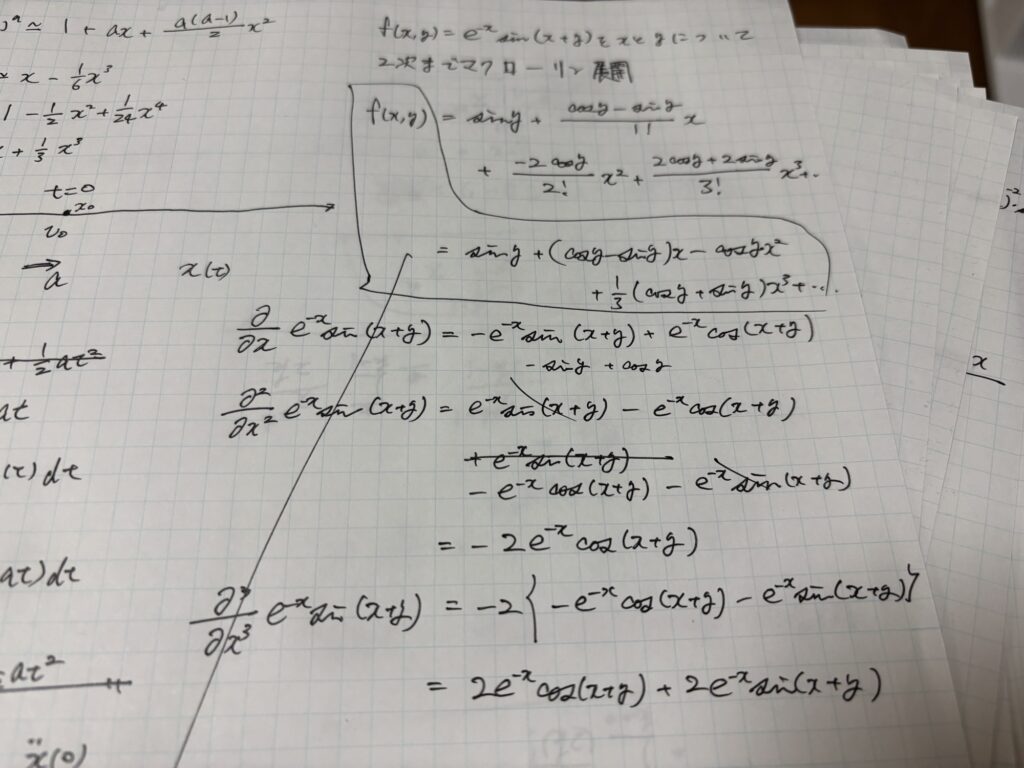 )ᵃ ≃ 1 + ax + a(a-1)/2 x²
x - 1/6 x³
1 - 1/2 x² + 1/24 x⁴
+ 1/3 x³
t=0
x₀
v₀
a
x(t)
+ 1/2 at²
at
(t) dt
at) dt
at²
ẍ(0)
f(x,y) = e⁻ˣ sin(x+y) を x と y について
2次までマクローリン展開
f(x,y) = sin y + (cos y - sin y)/1! x
+ (-2cos y)/2! x² + (2cos y + 2sin y)/3! x³+..
= sin y + (cos y - sin y)x - cos y x²
+ 1/3 (cos y + sin y)x³ + ....
∂/∂x e⁻ˣ sin(x+y) = -e⁻ˣ sin(x+y) + e⁻ˣ cos(x+y)
- sin y + cos y
∂²/∂x² e⁻ˣ sin(x+y) = e⁻ˣ sin(x+y) - e⁻ˣ cos(x+y)
+ e⁻ˣ sin(x+y)
- e⁻ˣ cos(x+y) - e⁻ˣ sin(x+y)
= - 2e⁻ˣ cos(x+y)
∂³/∂x³ e⁻ˣ sin(x+y) = -2{-e⁻ˣ cos(x+y) - e⁻ˣ sin(x+y)}
= 2e⁻ˣ cos(x+y) + 2e⁻ˣ sin(x+y)
x